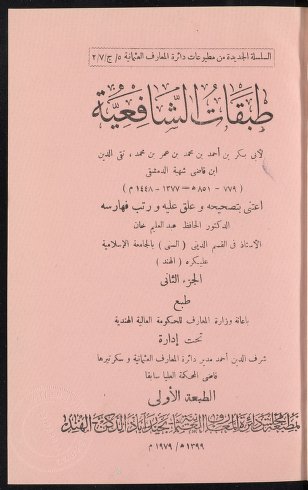 السلسلة الجديدة من مطبوعات دائرة المعارف العثمانية ٥/ج/٢/٧
طبقات الشافعية
لأبى بكر بن أحمد بن محمد بن عمر بن محمد، تقى الدين
ابن قاضى شهبة الدمشقى
( ٧٧٩ – ٨٥١ ھ = ١٣٧٧ – ١٤٤٨ م )
اعتنى بتصحيحه و علق عليه و رتب فهارسه
الدكتور الحافظ عبد العليم خان
الأستاذ فى القسم الدينى ( السنى ) بالجامعة الإسلامية
عليكره ( الهند )
الجزء الثانى
طبع
باعانة وزارة المعارف للحكومة العالية الهندية
تحت إدارة
شرف الدين أحمد مدير دائرة المعارف العثمانية و سكرتيرها
قاضى المحكمة العليا سابقا
الطبعة الأولى
بمطبعة مجلس دائرة المعارف العثمانية بحيدرآباد الدكن الهند
١٣٩٩ ھ / ١٩٧٩ م